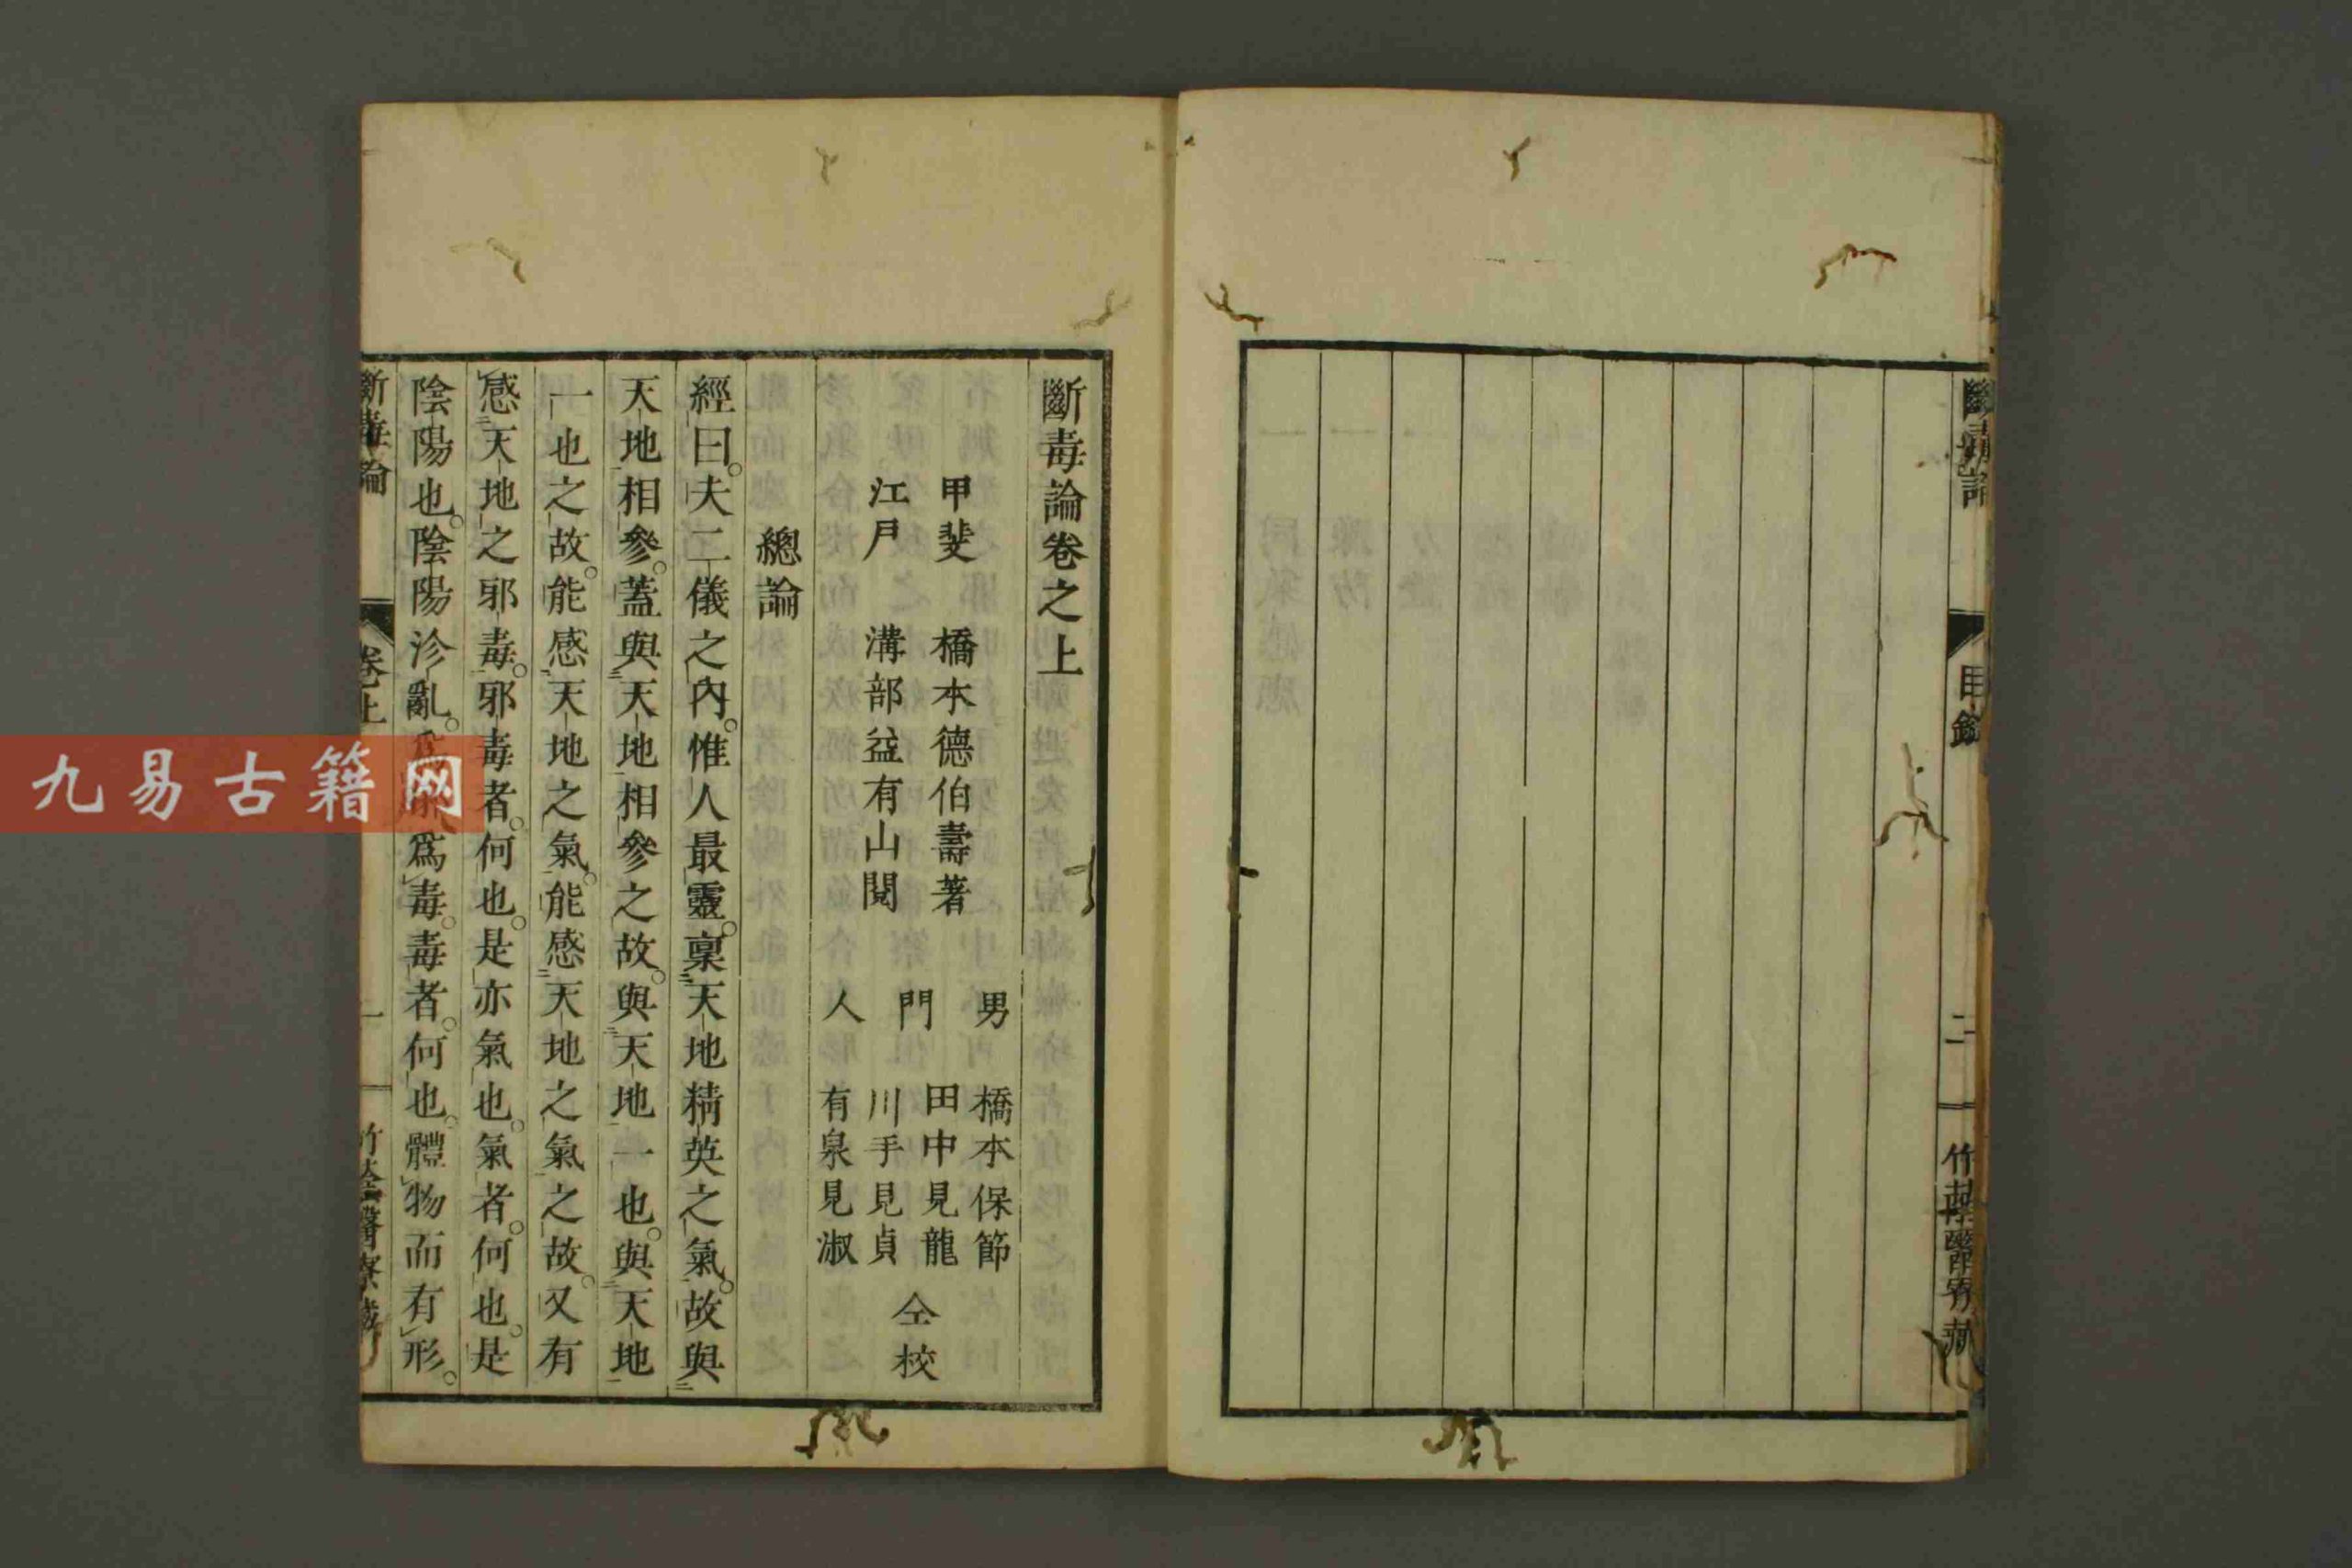 斷毒論
目錄
二
斷毒論卷之上
甲斐　橋本德伯壽著
江戸　溝部益有山閱
男　橋本保節
門　田中見龍
川手見貞
人　有泉見淑
仝校
總論
經曰。夫二儀之內。惟人最靈。稟天地精英之氣。故與
天地相參。蓋與天地相參之故。與天地一也。與天地
一也之故。能感天地之氣。能感天地之氣之故。又有
感天地之邪毒。邪毒者。何也。是亦氣也。氣者。何也。是
陰陽也。陰陽沴亂。爲毒。毒者。何也。體物而有形。
斷毒論
卷上
一
竹蔭醫寮藏
九易古籍网